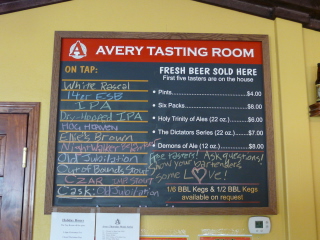 AVERY TASTING ROOM
ON TAP:
White Rascal
14er ESB
IPA
Dry-Hopped IPA
HOG HEAVEN
Ellie's Brown
Old Jubilation
Out of Bounds Stout
CZAR IMP STOUT
Cask: Old Jubilation
FRESH BEER SOLD HERE
First five tasters are on the house
• Pints......$4.00
• Six Packs......$8.00
• Holy Trinity of Ales (22 oz.)......$6.00
• The Dictators Series (22 oz.)......$7.00
• Demons of Ale (12 oz.)......$8.00
Free tasters! Ask questions!
Show your bartenders
some LOVE!
1/6 BBL Kegs & 1/2 BBL Kegs
available on request